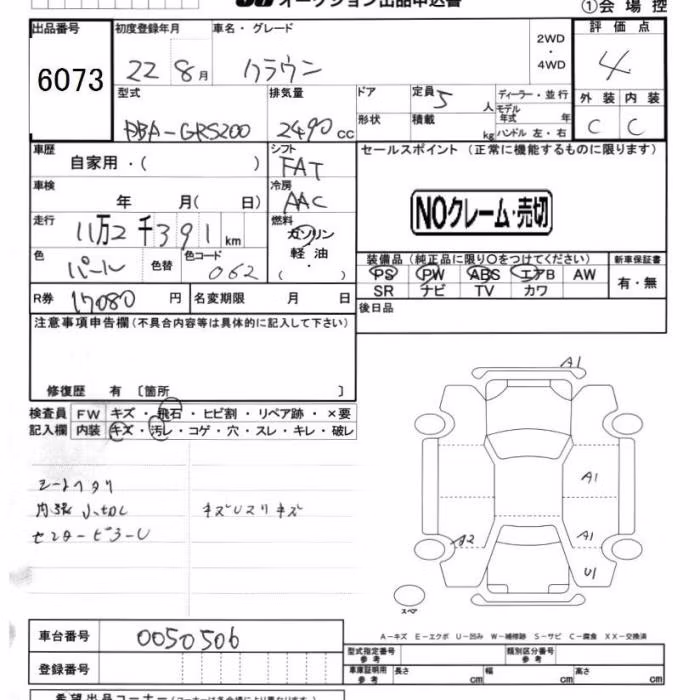 オークション出品申込書
①会場控
出品番号 6073
初度登録年月 22 8月
車名・グレード クラウン
2WD・4WD
評価点 4
外装 内装
C C
型式 DBA-GRS200
排気量 2490 cc
ドア 形状
定員 5 人
積載 kg
ディーラー・並行
モデル年式 年
ハンドル 左・右
車歴 自家用・( )
シフト FAT
セールスポイント(正常に機能するものに限ります)
車検 年 月( 日)
冷房 AAC
NOクレーム・売切
走行 11万2千391km
燃料 ガソリン 軽油 ( ・ )
色 パール 色替 色コード 062
装備品(純正品に限り〇をつけてください)
新車保証書
PS PW ABS エアB AW
有・無
SR ナビ TV カワ
R券 17080 円 名変期限 月 日
後日品
注意事項申告欄(不具合内容等は具体的に記入して下さい)
修復歴 有〔箇所 〕
検査員 FW キズ・飛石・ヒビ割・リペア跡・×要
記入欄 内装 キズ・汚レ・コゲ・穴・スレ・キレ・破レ
シートヘタリ
キズUスリキズ
A1
A1
A2 A1
U1
スペア
A-キズ E-エクボ U-凹み W-補修跡 S-サビ C-腐食 XX-交換済
車台番号 0050506
登録番号
型式指定番号 参考
類別区分番号 参考
車庫証明用 参考 長さ cm 幅 cm 高さ cm
希望出品コーナー